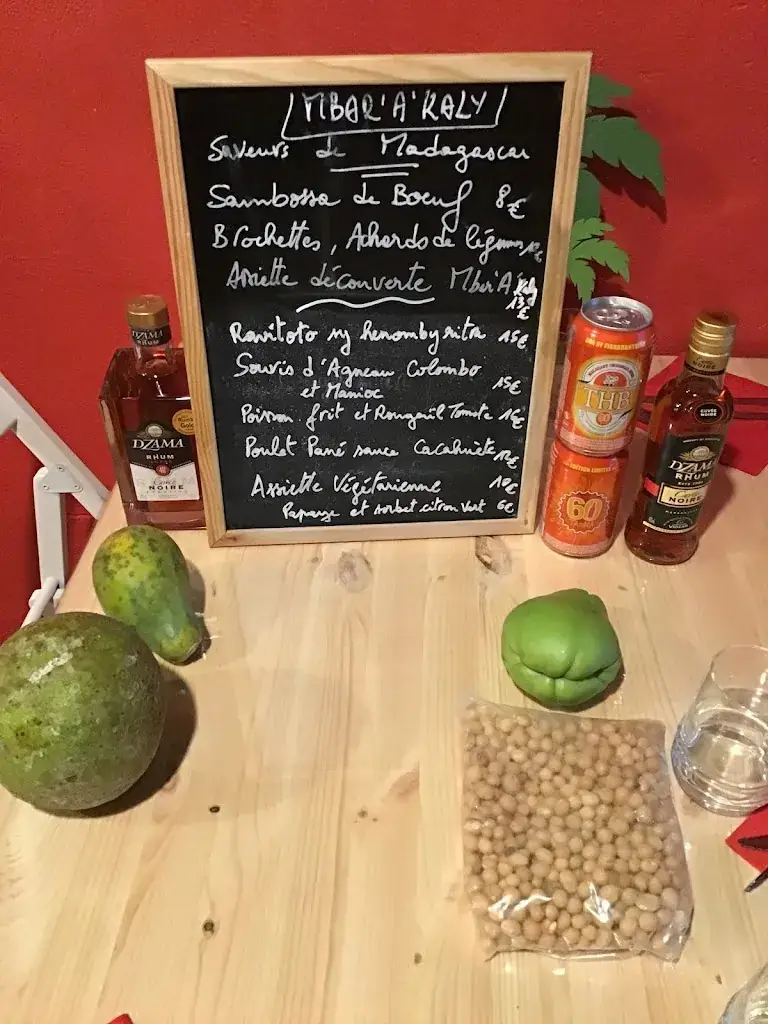 MBAR'A'KALY
Saveurs de Madagascar
Sambossa de Boeuf 8€
Brochettes, Achards de légumes
Assiette découverte Mbar'A'
Kaly
13
€
Ravitoto sy henomby ritra 15€
Souris d'Agneau Colombo
et Manioc 15€
Poisson frit et Rougail Tomate 16€
Poulet Pané sauce Cacahuète
Assiette Végétarienne 10€
Papaye et sorbet citron vert 6€
DZAMA
RHUM
Cuvée
NOIRE
THB
60
CUVÉE
NOIRE
DZAMA
RHUM
Cuvée
NOIRE